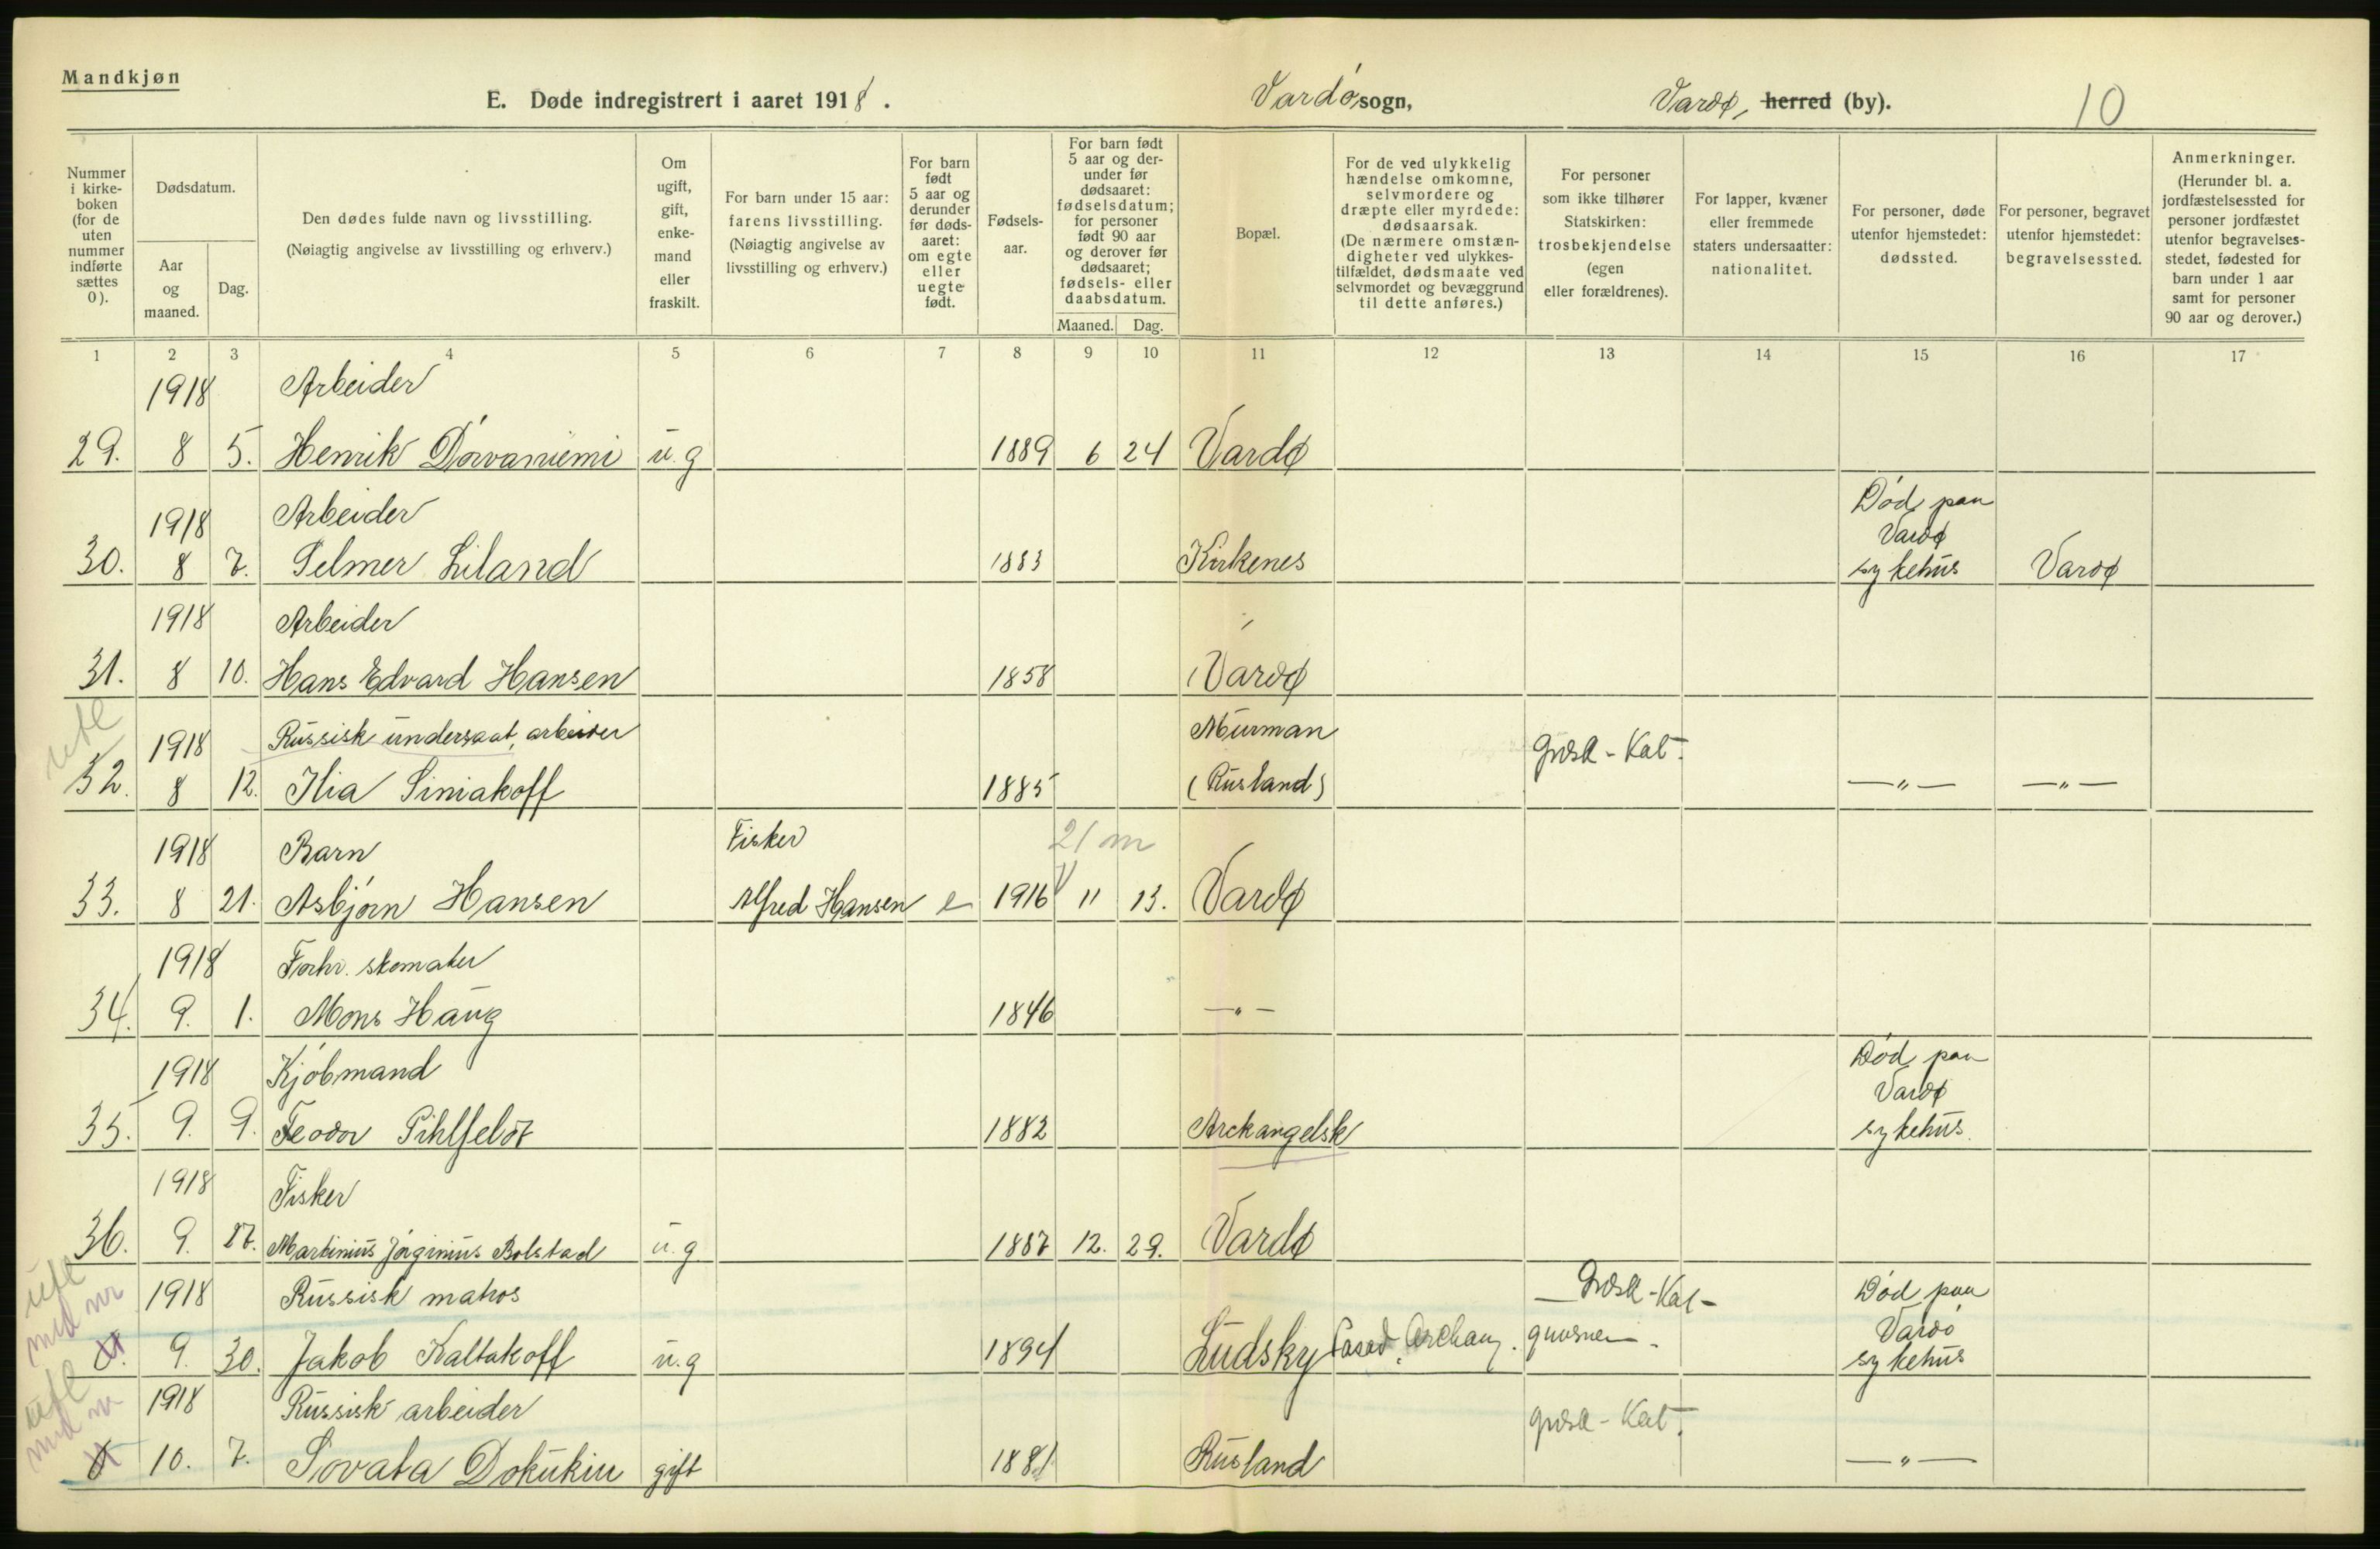 Mandkjøn
E. Døde indregistrert i aaret 1918. Vardø sogn, Vardø, herred (by). 10
Nummer i kirkeboken (for de uten nummer indførte sættes 0).
Dødsdatum.
Aar og maaned.
Dag.
Den dødes fulde navn og livsstilling.
(Nøiagtig angivelse av livsstilling og erhverv.)
Om ugift, gift, enkemand eller fraskilt.
For barn under 15 aar: farens livsstilling.
(Nøiagtig angivelse av livsstilling og erhverv.)
For barn født 5 aar og derunder før dødsaaret: om egte eller uegte født.
Fødselsaar.
For barn født 5 aar og derunder før dødsaaret: fødselsdatum; for personer født 90 aar og derover før dødsaaret; fødsels- eller daabsdatum.
Maaned. Dag.
Bopæl.
For de ved ulykkelig hændelse omkomne, selvmordere og dræpte eller myrdede: dødsaarsak.
(De nærmere omstændigheter ved ulykkestilfældet, dødsmaate ved selvmordet og bevæggrund til dette anføres.)
For personer som ikke tilhører Statskirken: trosbekjendelse (egen eller forældrenes).
For lapper, kvæner eller fremmede staters undersaatter: nationalitet.
For personer, døde utenfor hjemstedet: dødssted.
For personer, begravet utenfor hjemstedet: begravelsessted.
Anmerkninger.
(Herunder bl. a. jordfæstelsessted for personer jordfæstet utenfor begravelsesstedet, fødested for barn under 1 aar samt for personer 90 aar og derover.)
1 2 3 4 5 6 7 8 9 10 11 12 13 14 15 16 17
1918 Arbeider
29. 8 5. Henrik Dørvaniemi u.g 1889 6 24 Vardø
1918 Arbeider Død paa Vardø
30. 8 7. Selmer Liland 1883 Kirkenes sykehus Vardø
1918 Arbeider
31. 8 10. Hans Edvard Hansen 1858 Vardø
utl
1918 Russisk undersaat, arbeider Murman græsk-Kat.
32. 8 12. Ilia Siniakoff 1885 (Rusland) —"— —"—
1918 Barn Fisker 21 m
33. 8 21. Asbjørn Hansen Alfred Hansen e 1916 11 13. Vardø
1918 Forhv. skomaker
34. 9. 1. Mons Haug 1846 —"—
1918 Kjøbmand Død paa Vardø
35. 9. 9. Feodor Pihlfeldt 1882 Archangelsk sykehus.
1918 Fisker
36. 9. 17. Martinius Jørginius Bolstad u.g 1887 12. 29. Vardø
utl
med nr
1918 Russisk matros Græsk-Kat- Død paa Vardø
0. 9. 30. Jakob Kaltakoff u.g 1894 Ludsky Archang. sykehus
utl
med nr
1918 Russisk arbeider græsk-Kat.
0 10. 7. Sovata Dokukin gift 1881 Rusland —"—